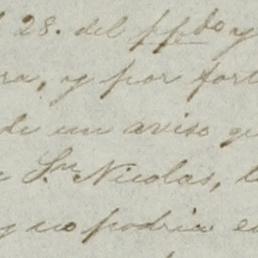 28. del ppdo y
ra, y por fort
de un aviso qu
Sn Nicolas, l
y no podria e